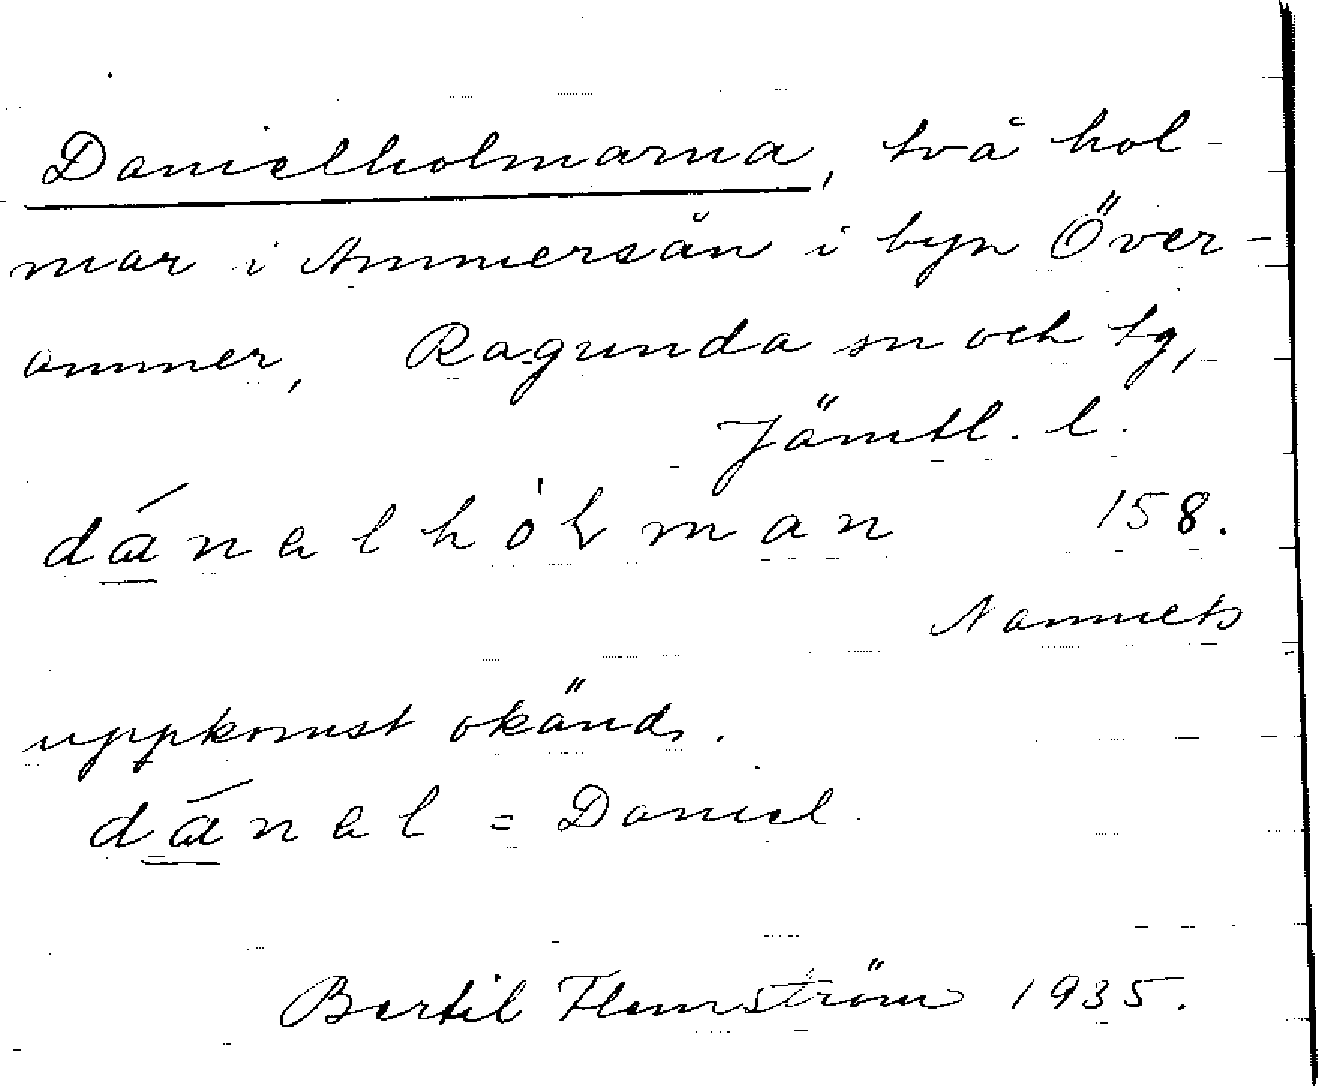 Danielholmarna, två hol-
mar i Ammersån i byn Över-
ammer, Ragunda sn och tg,
Jämtl. l.
dánalhòlman 158.
Namnets
uppkomst okänd.
dánal = Daniel.
Bertil Flemström 1935.